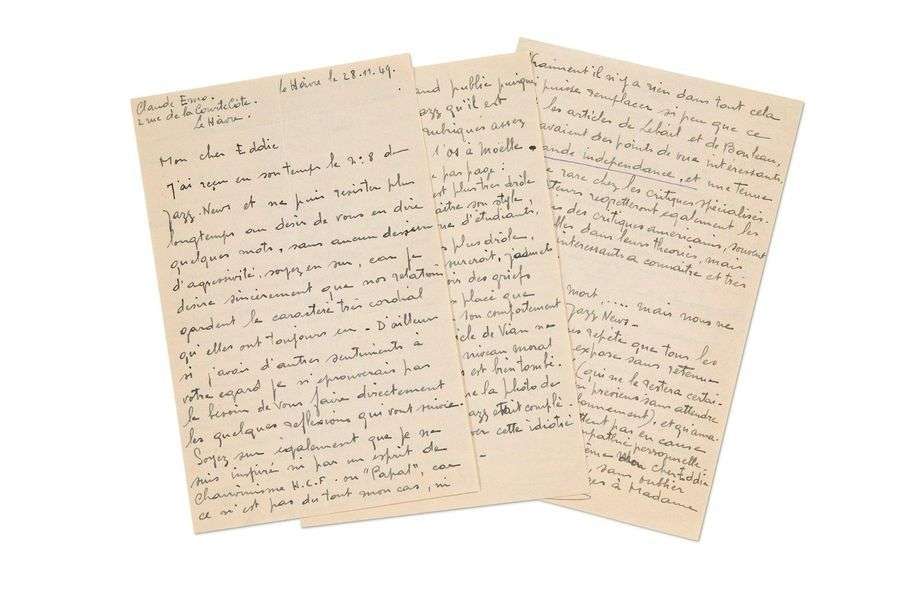 Claude Emo.
2 rue de la Courte Côte.
Le Hâvre.
le Hâvre le 28.11.49.
Mon cher Eddie
J'ai reçu en son temps le n° 8 d
Jazz. News et ne puis resister plus
longtemps au désir de vous en dire
quelques mots, sans aucun dessein
d'agressivité, soyez en sur, car je
désire sincèrement que nos relations
gardent le caractère très cordial
qu'elles ont toujours eu - D'ailleurs
si j'avais d'autres sentiments à
votre égard je n'éprouverais pas
le besoin de vous faire directement
les quelques réflexions qui vont suivre.
Soyez sur également que je ne
suis inspiré ni par un esprit de
Chauvinisme H.C.F. ou "Papal", car
ce n'est pas du tout mon cas, ni
and public puisque
azz qu'il est
rubriques assez
l'os à Moëlle -
pas page :
est plus très drôle
aître son style,
e d'étudiants,
plus drôle.
surcroit, j'admets
oir des griefs
placé que
son comportement
cle de Vian ne
niveau moral
est bien tombé.
ne la photo de
azz était complé-
er cette idiotie
-
Vraiment il n'y a rien dans tout cela
puisse remplacer si peu que ce
les articles de Ledail et de Bonleau,
avaient des points de vue intéressants,
ande independance, et une tenue
rare chez les critiques spécialisés.
teurs regretteront également les
des critiques americains, souvent
lles dans leurs théories, mais
intéressants a connaitre et très
mort ..... mais nous ne
Jazz News -
us répète que tous les
expose sans retenue
(qui ne le restera certai-
n previens sans attendre
bonnement), et qu'ama-
ttent pas en cause
mpathie personnelle.
ême mon cher Eddie
, sans oublier
es à Madame